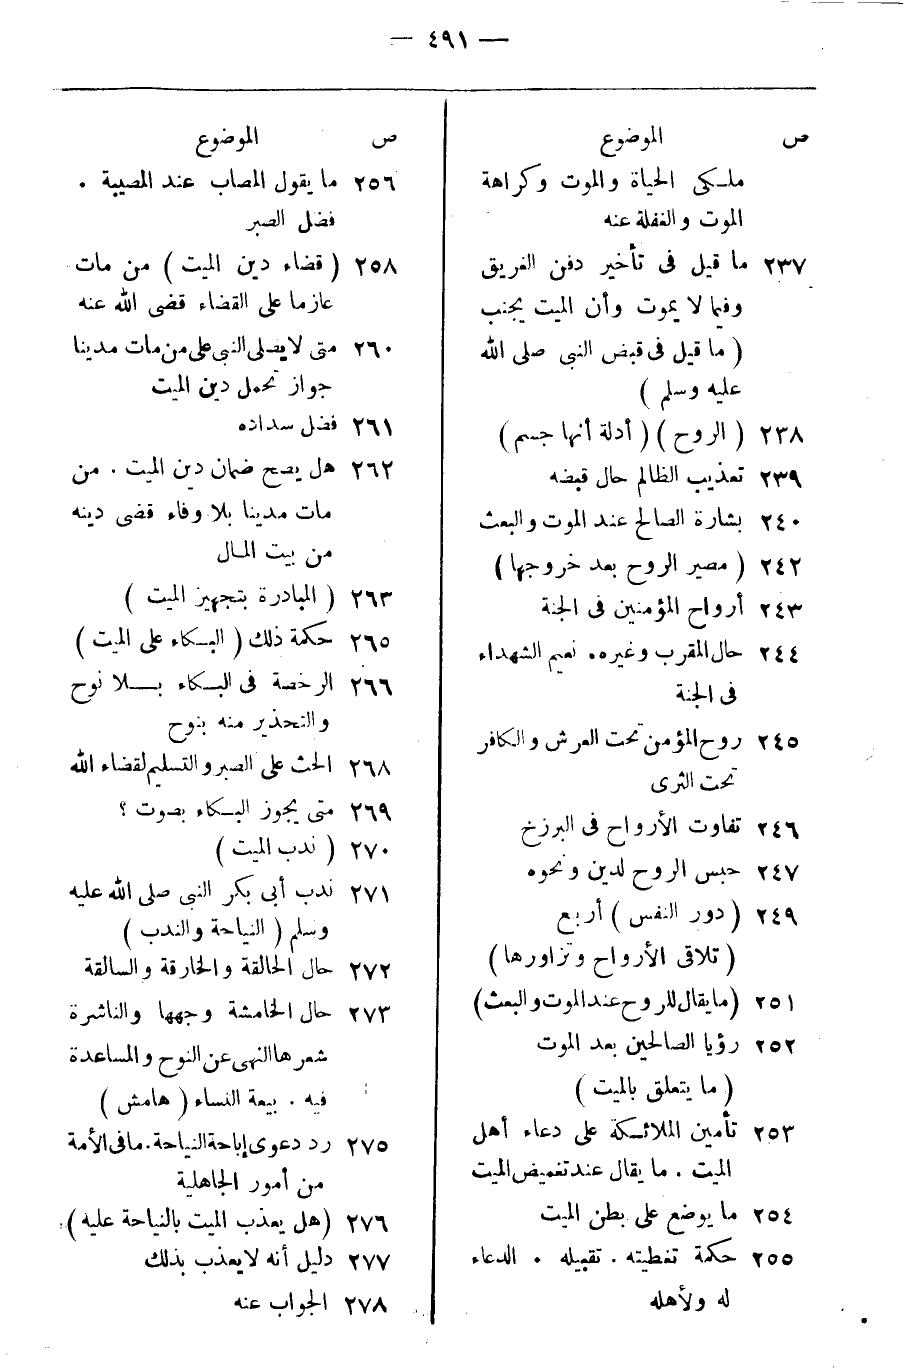 — ٤٩١ —
ص الموضوع
ملكى الحياة والموت وكراهة
الموت والغفلة عنه
٢٣٧ ما قيل فى تأخير دفن الغريق
وفيما لا يموت وأن الميت يجنب
( ما قيل فى قبض النبى صلى الله
عليه وسلم )
٢٣٨ ( الروح ) ( أدلة أنها جسم )
٢٣٩ تعذيب الظالم حال قبضه
٢٤٠ بشارة الصالح عند الموت والبعث
٢٤٢ ( مصير الروح بعد خروجها )
٢٤٣ أرواح المؤمنين فى الجنة
٢٤٤ حال المقرب وغيره. نعيم الشهداء
فى الجنة
٢٤٥ روح المؤمن تحت العرش والكافر
تحت الثرى
٢٤٦ تفاوت الأرواح فى البرزخ
٢٤٧ حبس الروح لدين ونحوه
٢٤٩ ( دور النفس ) أربع
( تلاقى الأرواح وتزاورها )
٢٥١ (ما يقال للروح عند الموت والبعث)
٢٥٢ رؤيا الصالحين بعد الموت
( ما يتعلق بالميت )
٢٥٣ تأمين الملائكة على دعاء أهل
الميت . ما يقال عند تغميض الميت
٢٥٤ ما يوضع على بطن الميت
٢٥٥ حكمة تغطيته . تقبيله . الدعاء
له ولأهله
ص الموضوع
٢٥٦ ما يقول المصاب عند المصيبة .
فضل الصبر
٢٥٨ ( قضاء دين الميت ) من مات
عازما على القضاء قضى الله عنه
٢٦٠ متى لا يصلى النبى على من مات مدينا
جواز تحمل دين الميت
٢٦١ فضل سداده
٢٦٢ هل يصح ضمان دين الميت . من
مات مدينا بلا وفاء قضى دينه
من بيت المال
٢٦٣ ( المبادرة بتجهيز الميت )
٢٦٥ حكمة ذلك ( البكاء على الميت )
٢٦٦ الرخصة فى البكاء بلا نوح
والتحذير منه بنوح
٢٦٨ الحث على الصبر والتسليم لقضاء الله
٢٦٩ متى يجوز البكاء بصوت ؟
٢٧٠ ( ندب الميت )
٢٧١ ندب أبى بكر النبى صلى الله عليه
وسلم ( النياحة والندب )
٢٧٢ حال الحالقة والخارقة والسالقة
٢٧٣ حال الخامشة وجهها والناشرة
شعرها النهى عن النوح والمساعدة
فيه . بيعة النساء ( هامش )
٢٧٥ رد دعوى إباحة النياحة. ما فى الأمة
من أمور الجاهلية
٢٧٦ (هل يعذب الميت بالنياحة عليه).
٢٧٧ دليل أنه لا يعذب بذلك
٢٧٨ الجواب عنه